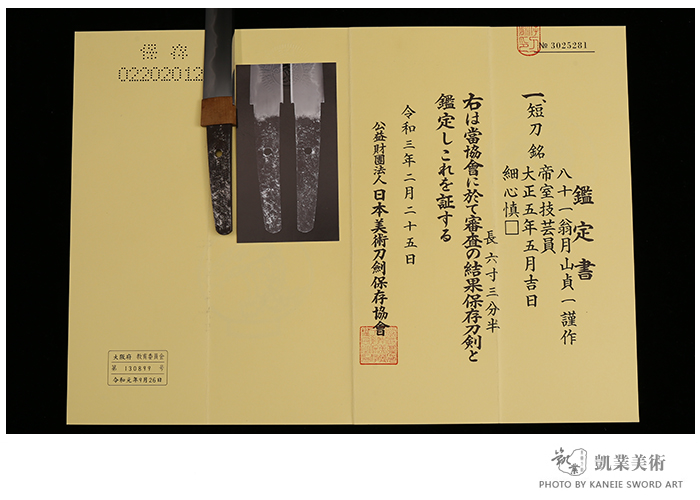 № 3025281
鑑定書
一、短刀 銘
八十一翁月山貞一謹作
帝室技芸員
大正五年五月吉日
細心慎□
長 六寸三分半
右は當協會に於て審査の結果保存刀剣と
鑑定しこれを証する
令和三年二月二十五日
公益財團法人 日本美術刀劍保存協會
保存
02202012
大阪府 教育委員会
第 130899 号
令和元年9月26日
凱業美術
PHOTO BY KANEIE SWORD ART